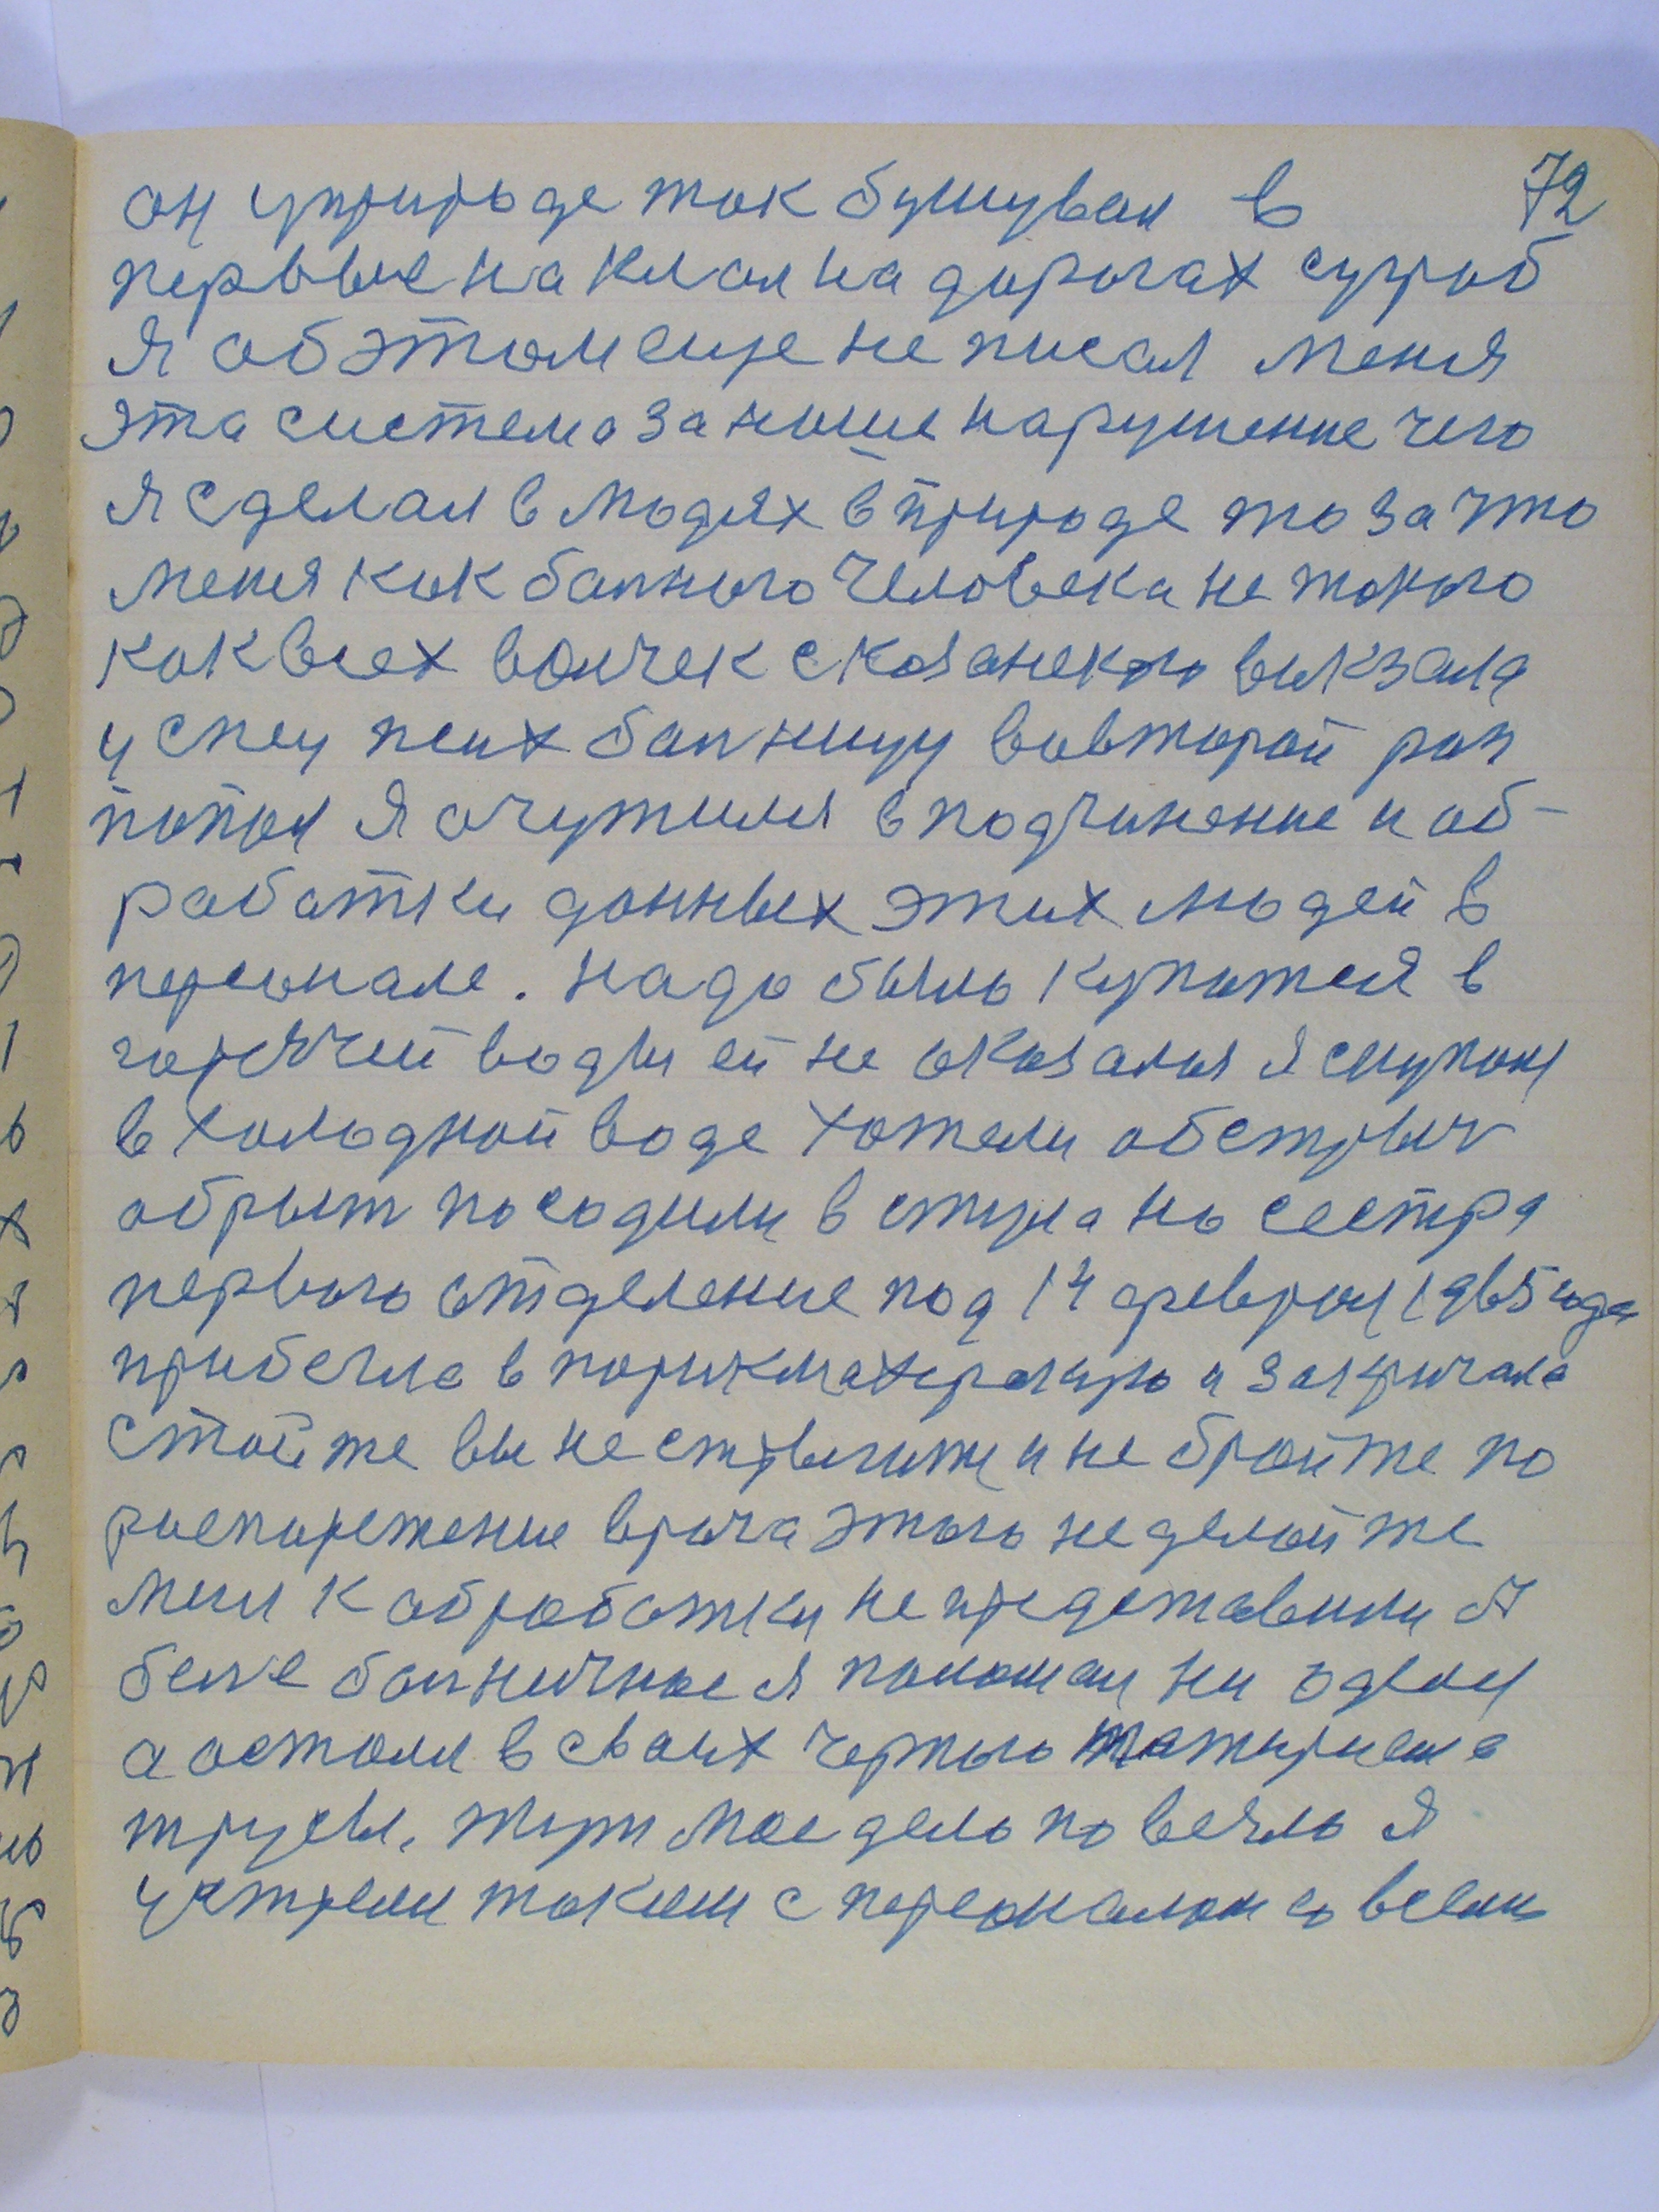 72
он уприроде так бушувал в
первые на клал на дорогах сугроб
Я об этом еще не писал меня
эта система за ныше нарушение чего
я сделал в людях в природе то за что
меня как балного человека не только
как всех волчек с казанского вакзала
у спец псих балницу вовторой раз
попал Я очутился в подчинение и об-
работки данных этих людей в
персонале. надо было купатся в
горячей воды ей не оказалося я скупалн
в холодной воде хотели обстрыч
обрыт посодили в стула но сестра
первого отделение под 14 феврал 1965 года
прибегла в парикмахерскую и закричала
стойте вы не стрыгити и не бройте по
распорежение врача этого не делайте
мени к обработки не представили Я
белье балничное я поломан ни одел
а осталя в своих чертого
трусы. тут мое дело повеяло Я
устрели такими с персоналом со всеми